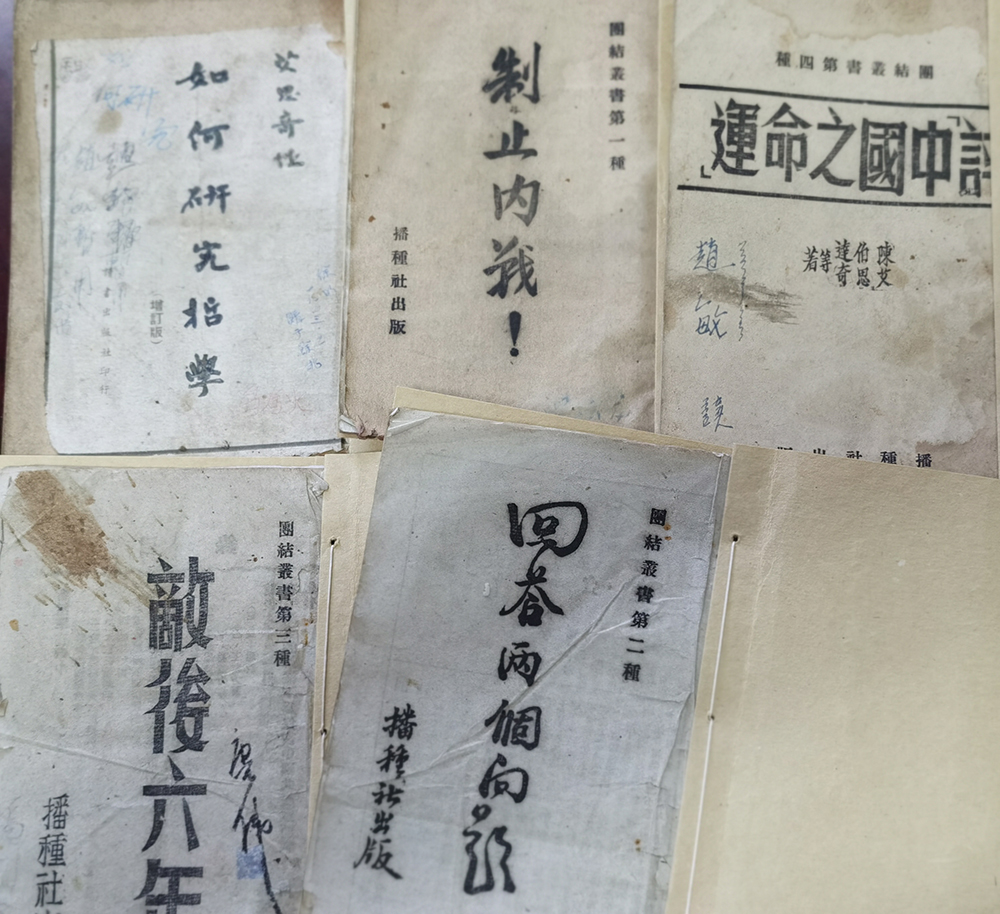 艾思奇作
如何研究哲學
增訂版）
團結叢書第一種
制止内戰！
播種社出版
團結叢書第四種
評「中國之命運」
陳伯達
艾思奇
等著
趙
播種社出版
團結叢書第三種
敵後六年
播種社
團結叢書第二種
回荅两個问題
播種社出版